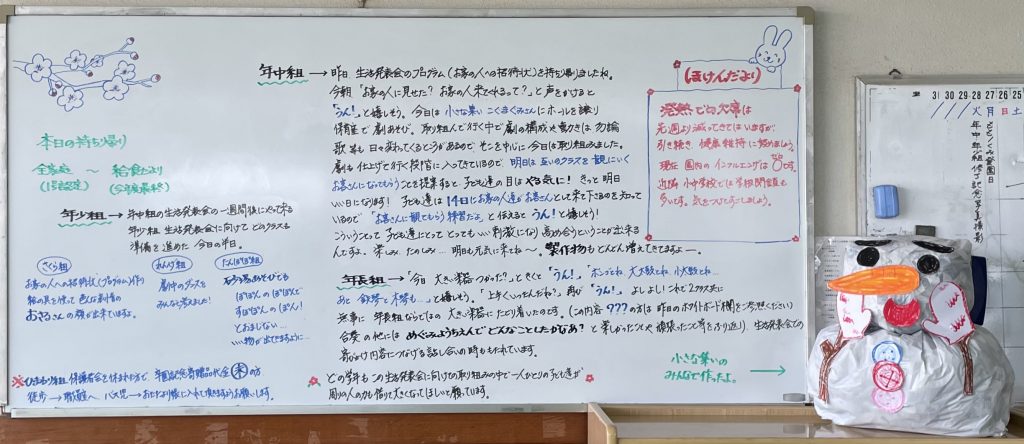 本日の持ち帰り
全家庭 ～ 給食だより
(1号認定) (今年度最終)
年少組 → 年中組の生活発表会の一週間後にやって来る
年少組 生活発表会に向けて どのクラスも
準備を進めた 今日の半日。
さくら組
お客の人への招待状(プログラム)作り
絵の具を使って 色んな表情の
おサルさんの顔が出来ていますよ。
れんげ組
劇中のダンスを
みんなで考えました!
たんぽぽ組
砂場あそびでも
すぽぽんの ぽぽんで
すぽぽんの ぽん!
とおまじない…
いい物が出てきますように…
保護者会を休まれた方で
の方
徒歩 → 職員へ バス児 → おたより帳に入れて頂きますようお願いします。
年中組 → 昨日 生活発表会のプログラム(お客の人への招待状)を持ち帰りましたね。
今朝「お客の人に見せた? お客の人来てくれるって?」と声をかけると
「うん!」と嬉しそう。今日は 小さな集い こくまぐみさんにホールを譲り
保育室で 劇あそび。取り組んで行く中で 劇の構成や動きは 勿論
歌等も 日々変わってくるところがあるので、そこを中心に今日は取り組みました。
劇も仕上げて行く段階に入ってきているので 明日は 互いのクラスを「観にいく
お客さんになってもらう」ことを提案すると 子ども達の目は やる気に! きっと明日
いい日になります! 子ども達は 14日にお客の人達が「お客さん」として来て下さるのを知って
いるので「お客さんに観てもらう 練習だよ」と伝えると うん! と嬉しそう!
こういうことって 子ども達にとって とっても いい刺激になり 高め合うということが出来る
んですよ。楽しみ… たのしみ… 明日も元気に来てね〜。製作物もどんどん増えてきてますよ ―。
年長組 → 「今日 大きい楽器つかった?」ときくと「うん!」「ボンゴとね 大太鼓とね 小太鼓とね…
あと 鉄琴と木琴も…」と嬉しそう。「上手くいったんだね?」再び「うん!」。よしよし! これで2クラス共に
無事に 年長組ならではの 大きい楽器に たどり着いたのです。(この内容 ???の方は 昨日のホワイトボード欄をご参照ください)
合奏の他には めぐみようちえんで どんなことしたかなあ? と楽しかったことや 頑張った事をふり返り 生活発表会での
台詞内容につなげる話し合いの時ももたれています。
どの学年も この生活発表会に向けての取り組みの中で 一人ひとりの子ども達が
周りの人の力も借りて 大きくなってほしいと願っています。
ほけんだより
発熱での欠席は
先週より減ってきてはいますが、
引き続き 健康維持に努めましょう。
現在 園内の インフルエンザは 0です。
近隣 小中学校では学級閉鎖も
多いです。気をつけてすごしましょう。
小さな集いの
みんなで作ったよ。 →
31 30 29 28 27 26 25
火 月 日 土